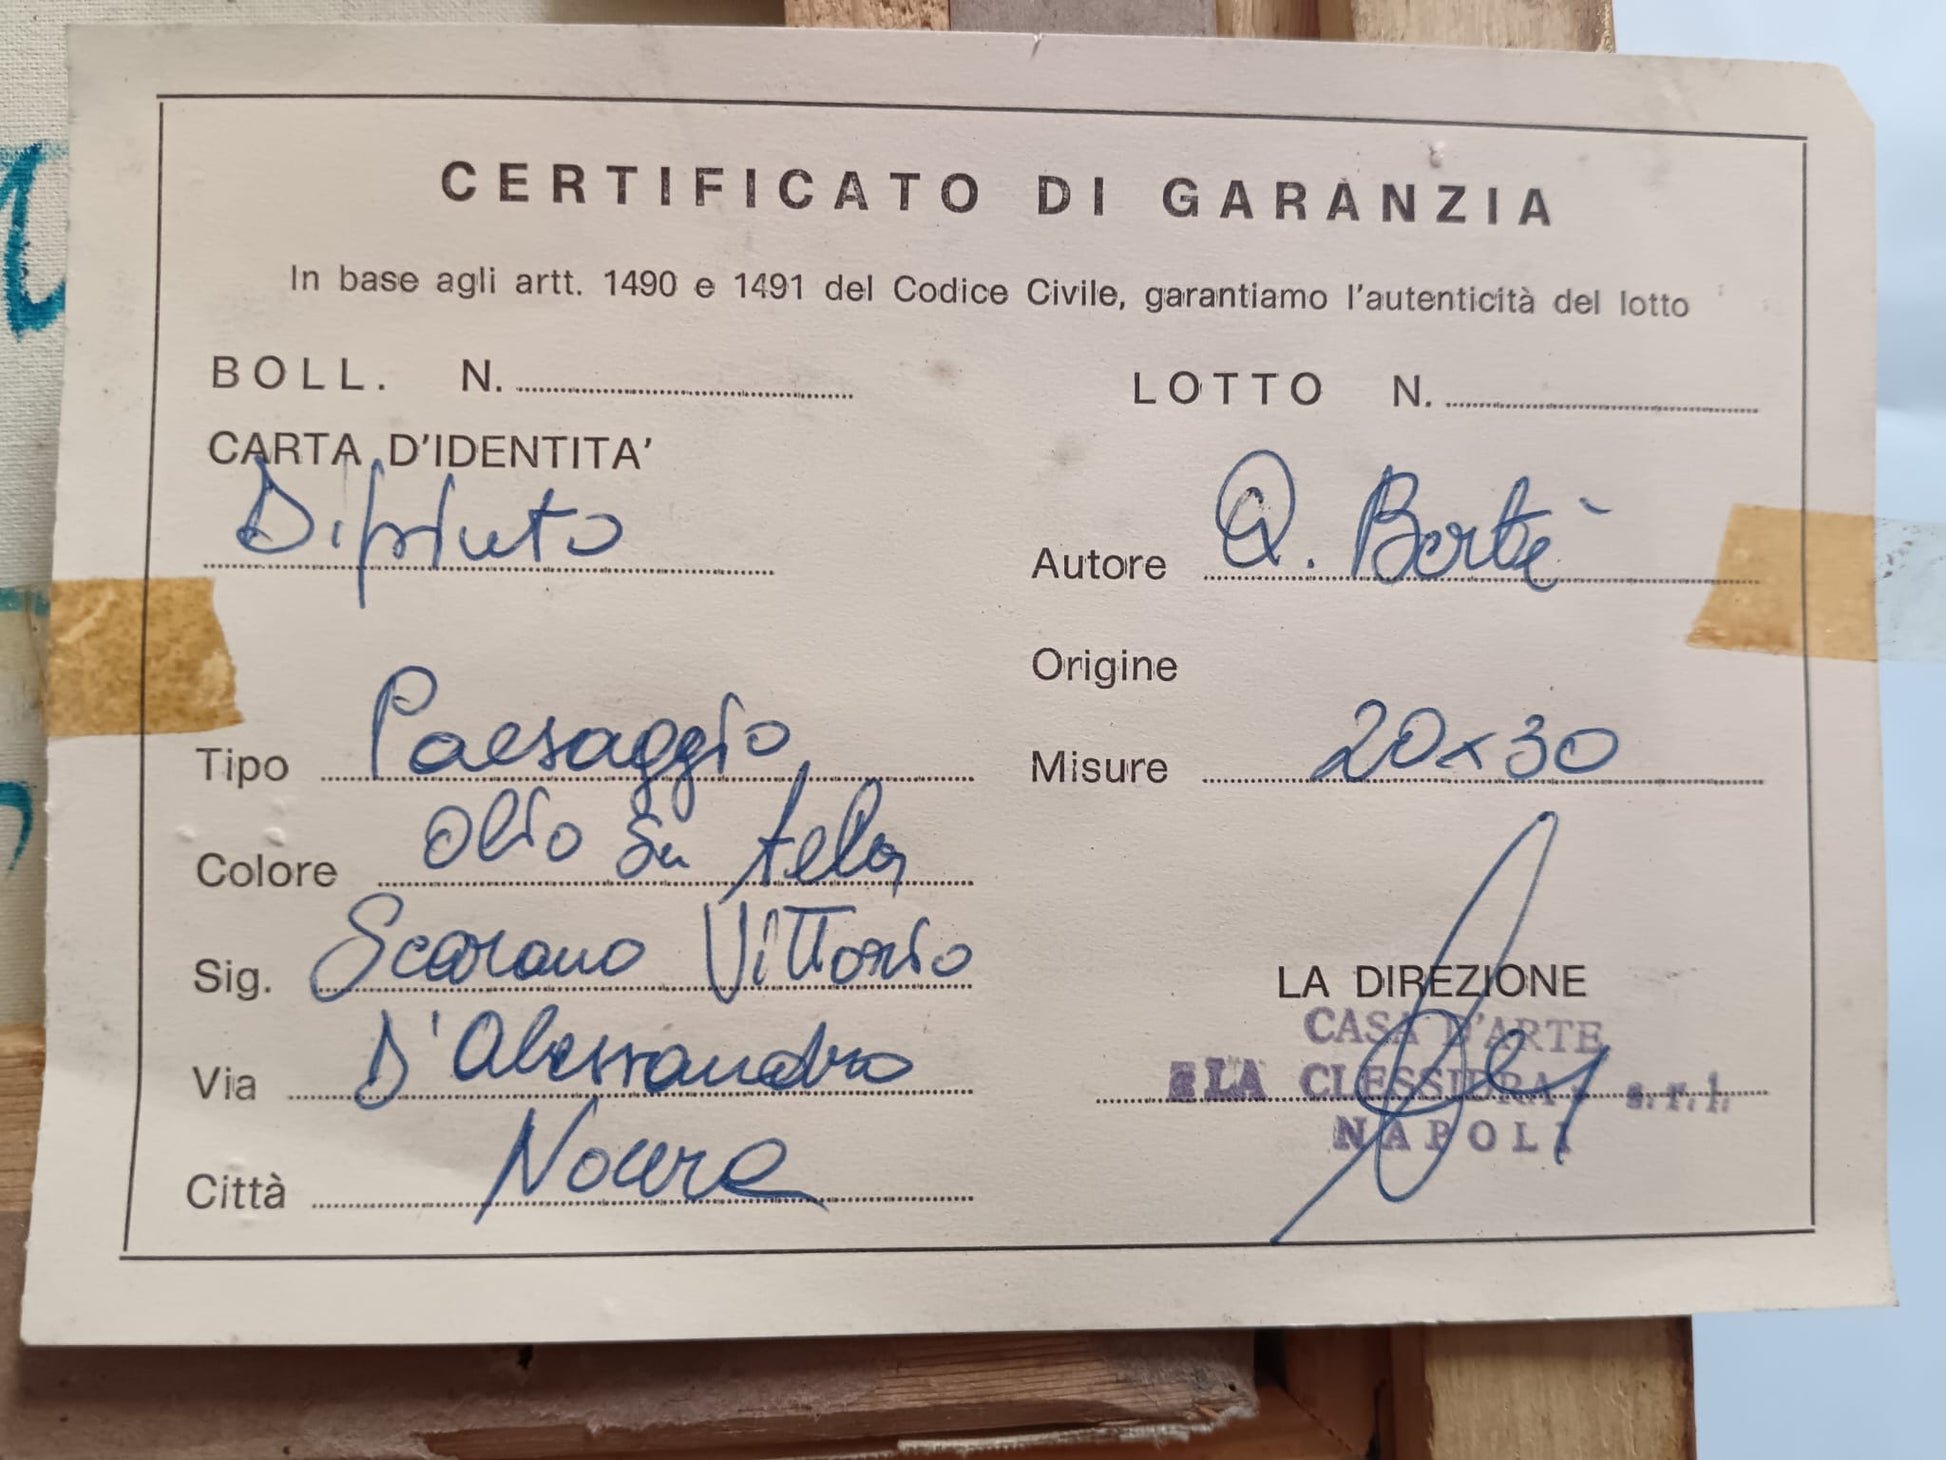 CERTIFICATO DI GARANZIA
In base agli artt. 1490 e 1491 del Codice Civile, garantiamo l'autenticità del lotto
BOLL. N. LOTTO N.
CARTA D'IDENTITA'
Dipinto
Autore Q. Bertè
Origine
Tipo Paesaggio
Misure 20x30
Colore olio su tela
Sig. Scarano Vittorio
LA DIREZIONE
CASA D'ARTE
Via D'Alessandro
LA CLESSIDRA s.r.l.
NAPOLI
Città